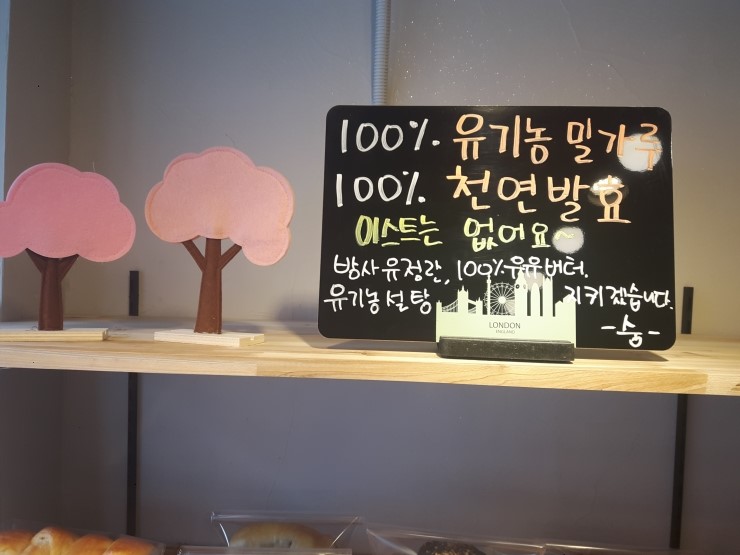 100% 유기농 밀가루
100% 천연발효
이스트는 없어요~
방사유정란, 100%우유버터.
유기농설탕 지키겠습니다.
-숨-
LONDON
ENGLAND